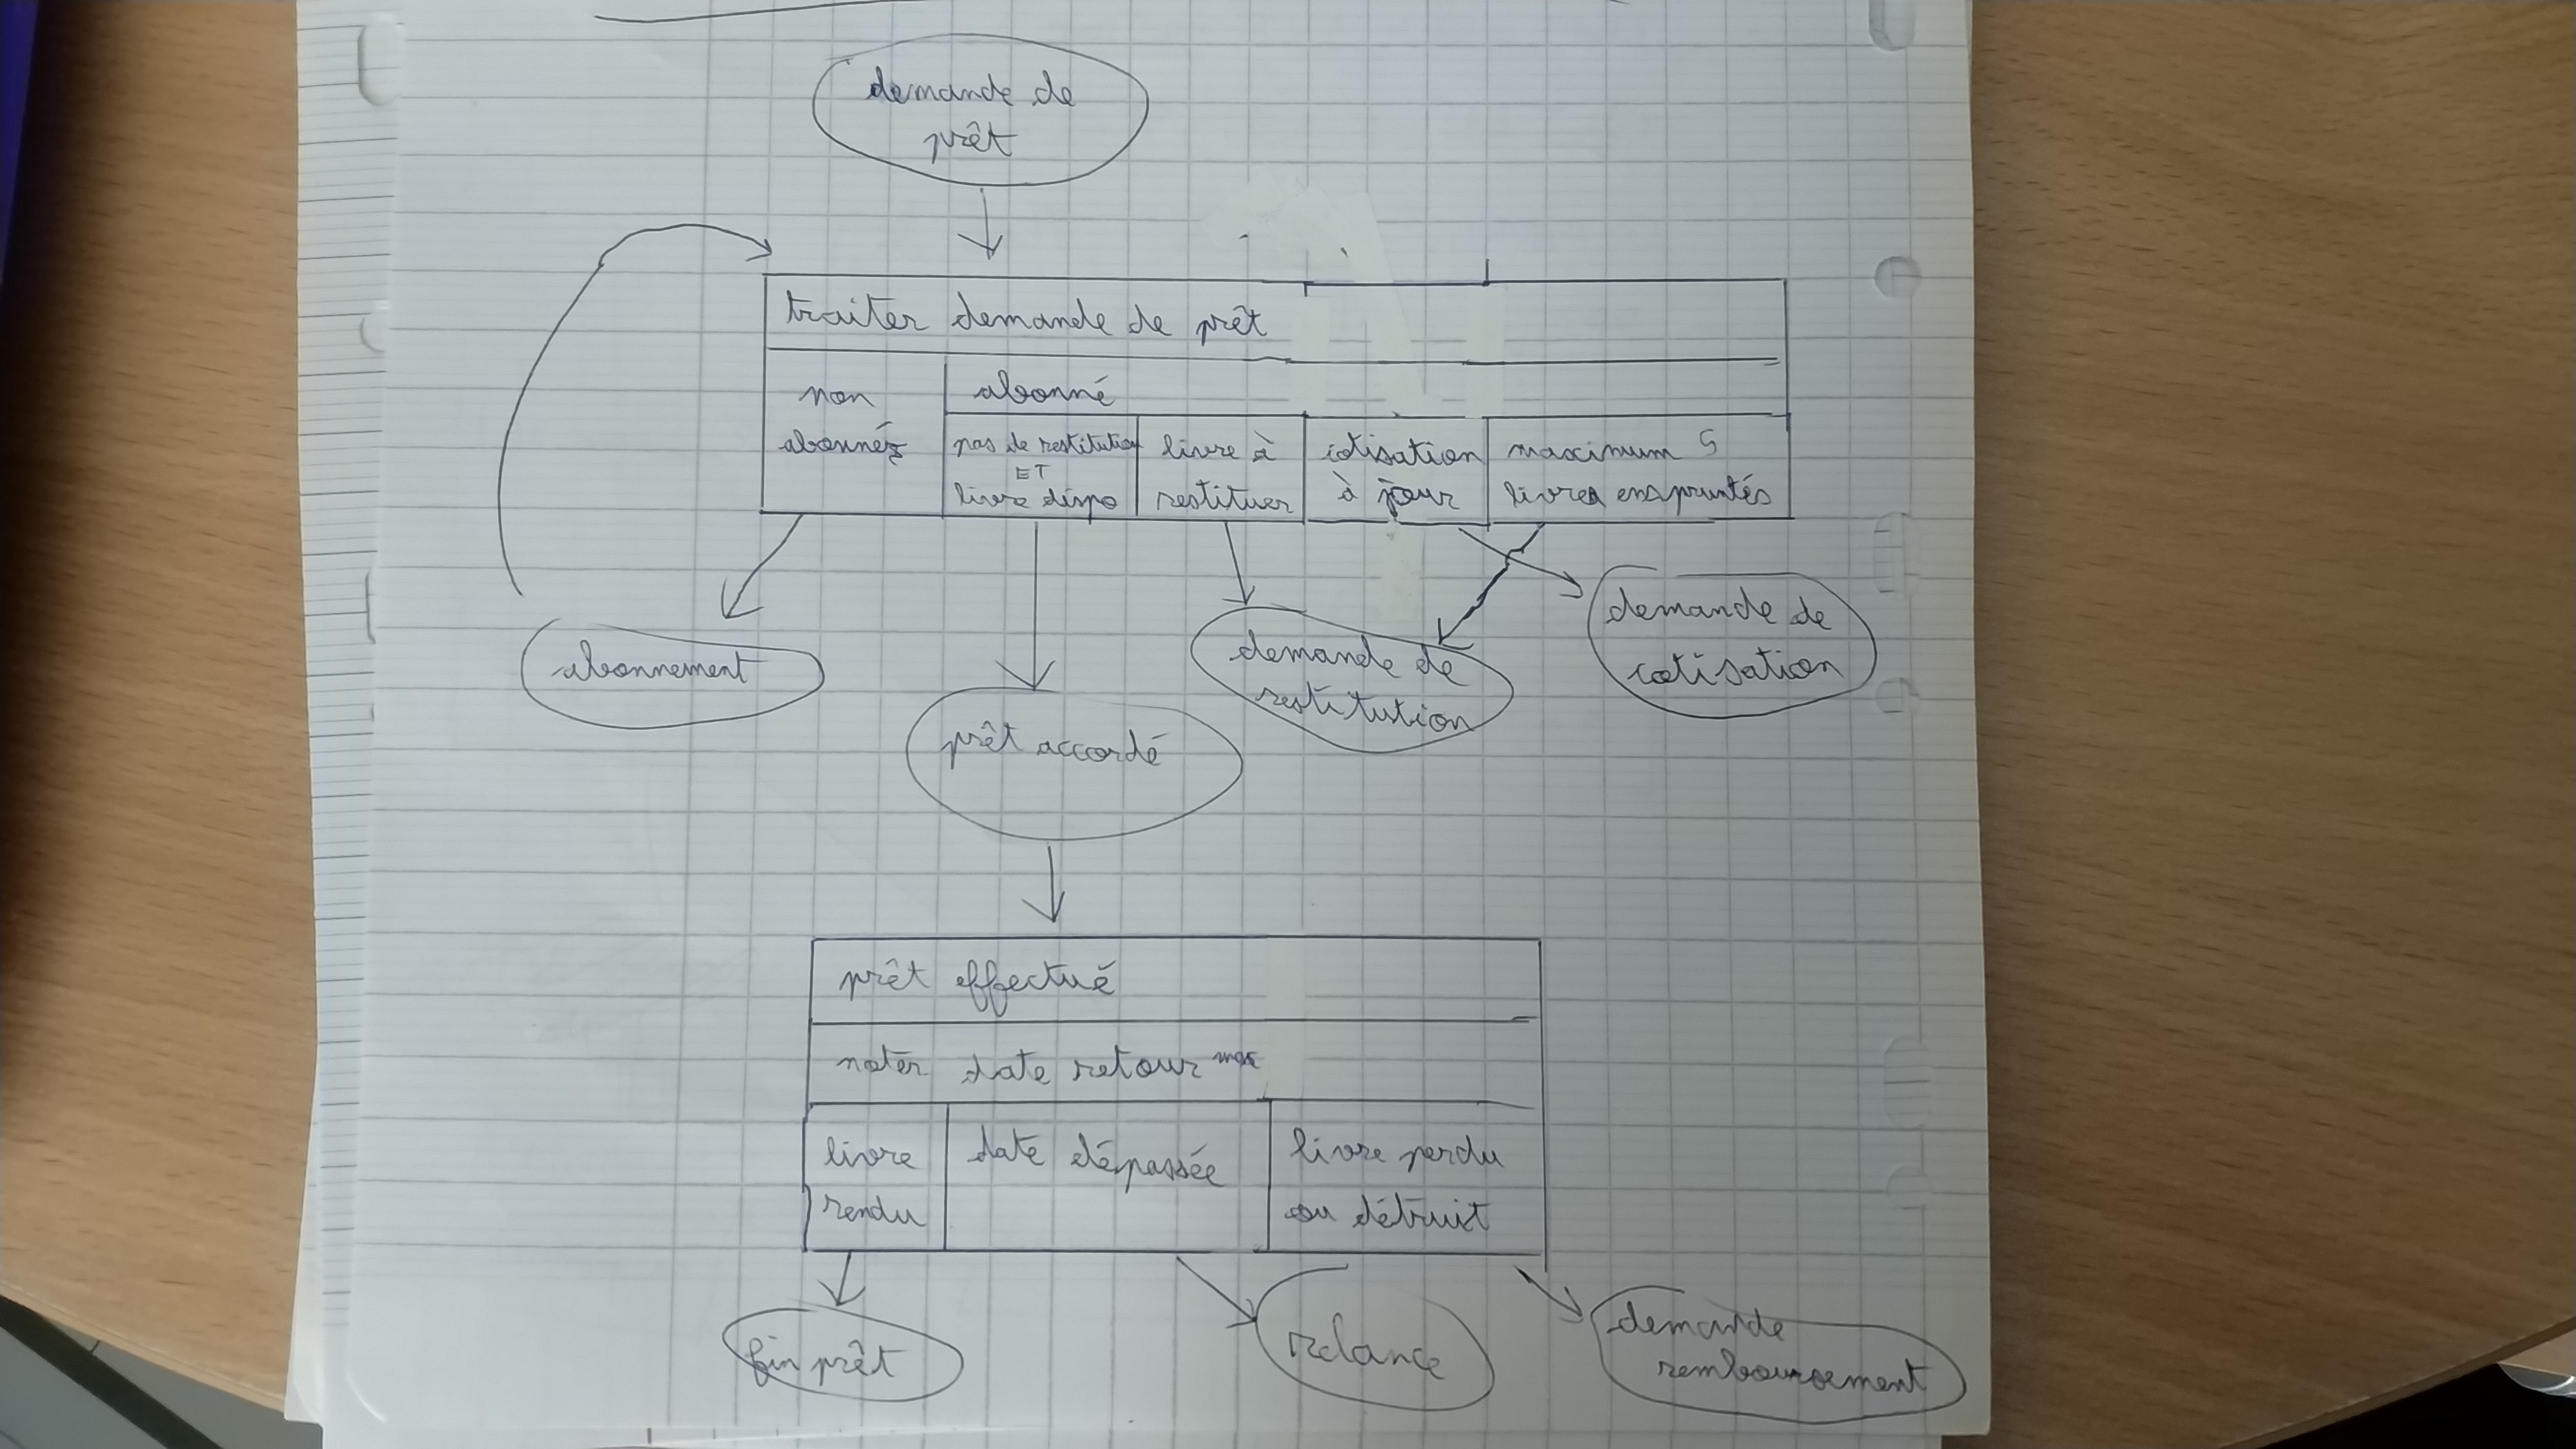 demande de
prêt
traiter demande de prêt
non
abonné
abonné
pas de restitution
ET
livre dispo
livre à
restituer
cotisation
à jour
maximum 5
livres empruntés
abonnement
prêt accordé
demande de
restitution
demande de
cotisation
prêt effectué
noter date retour max
livre
rendu
date dépassée
livre perdu
ou détruit
fin prêt
relance
demande
remboursement